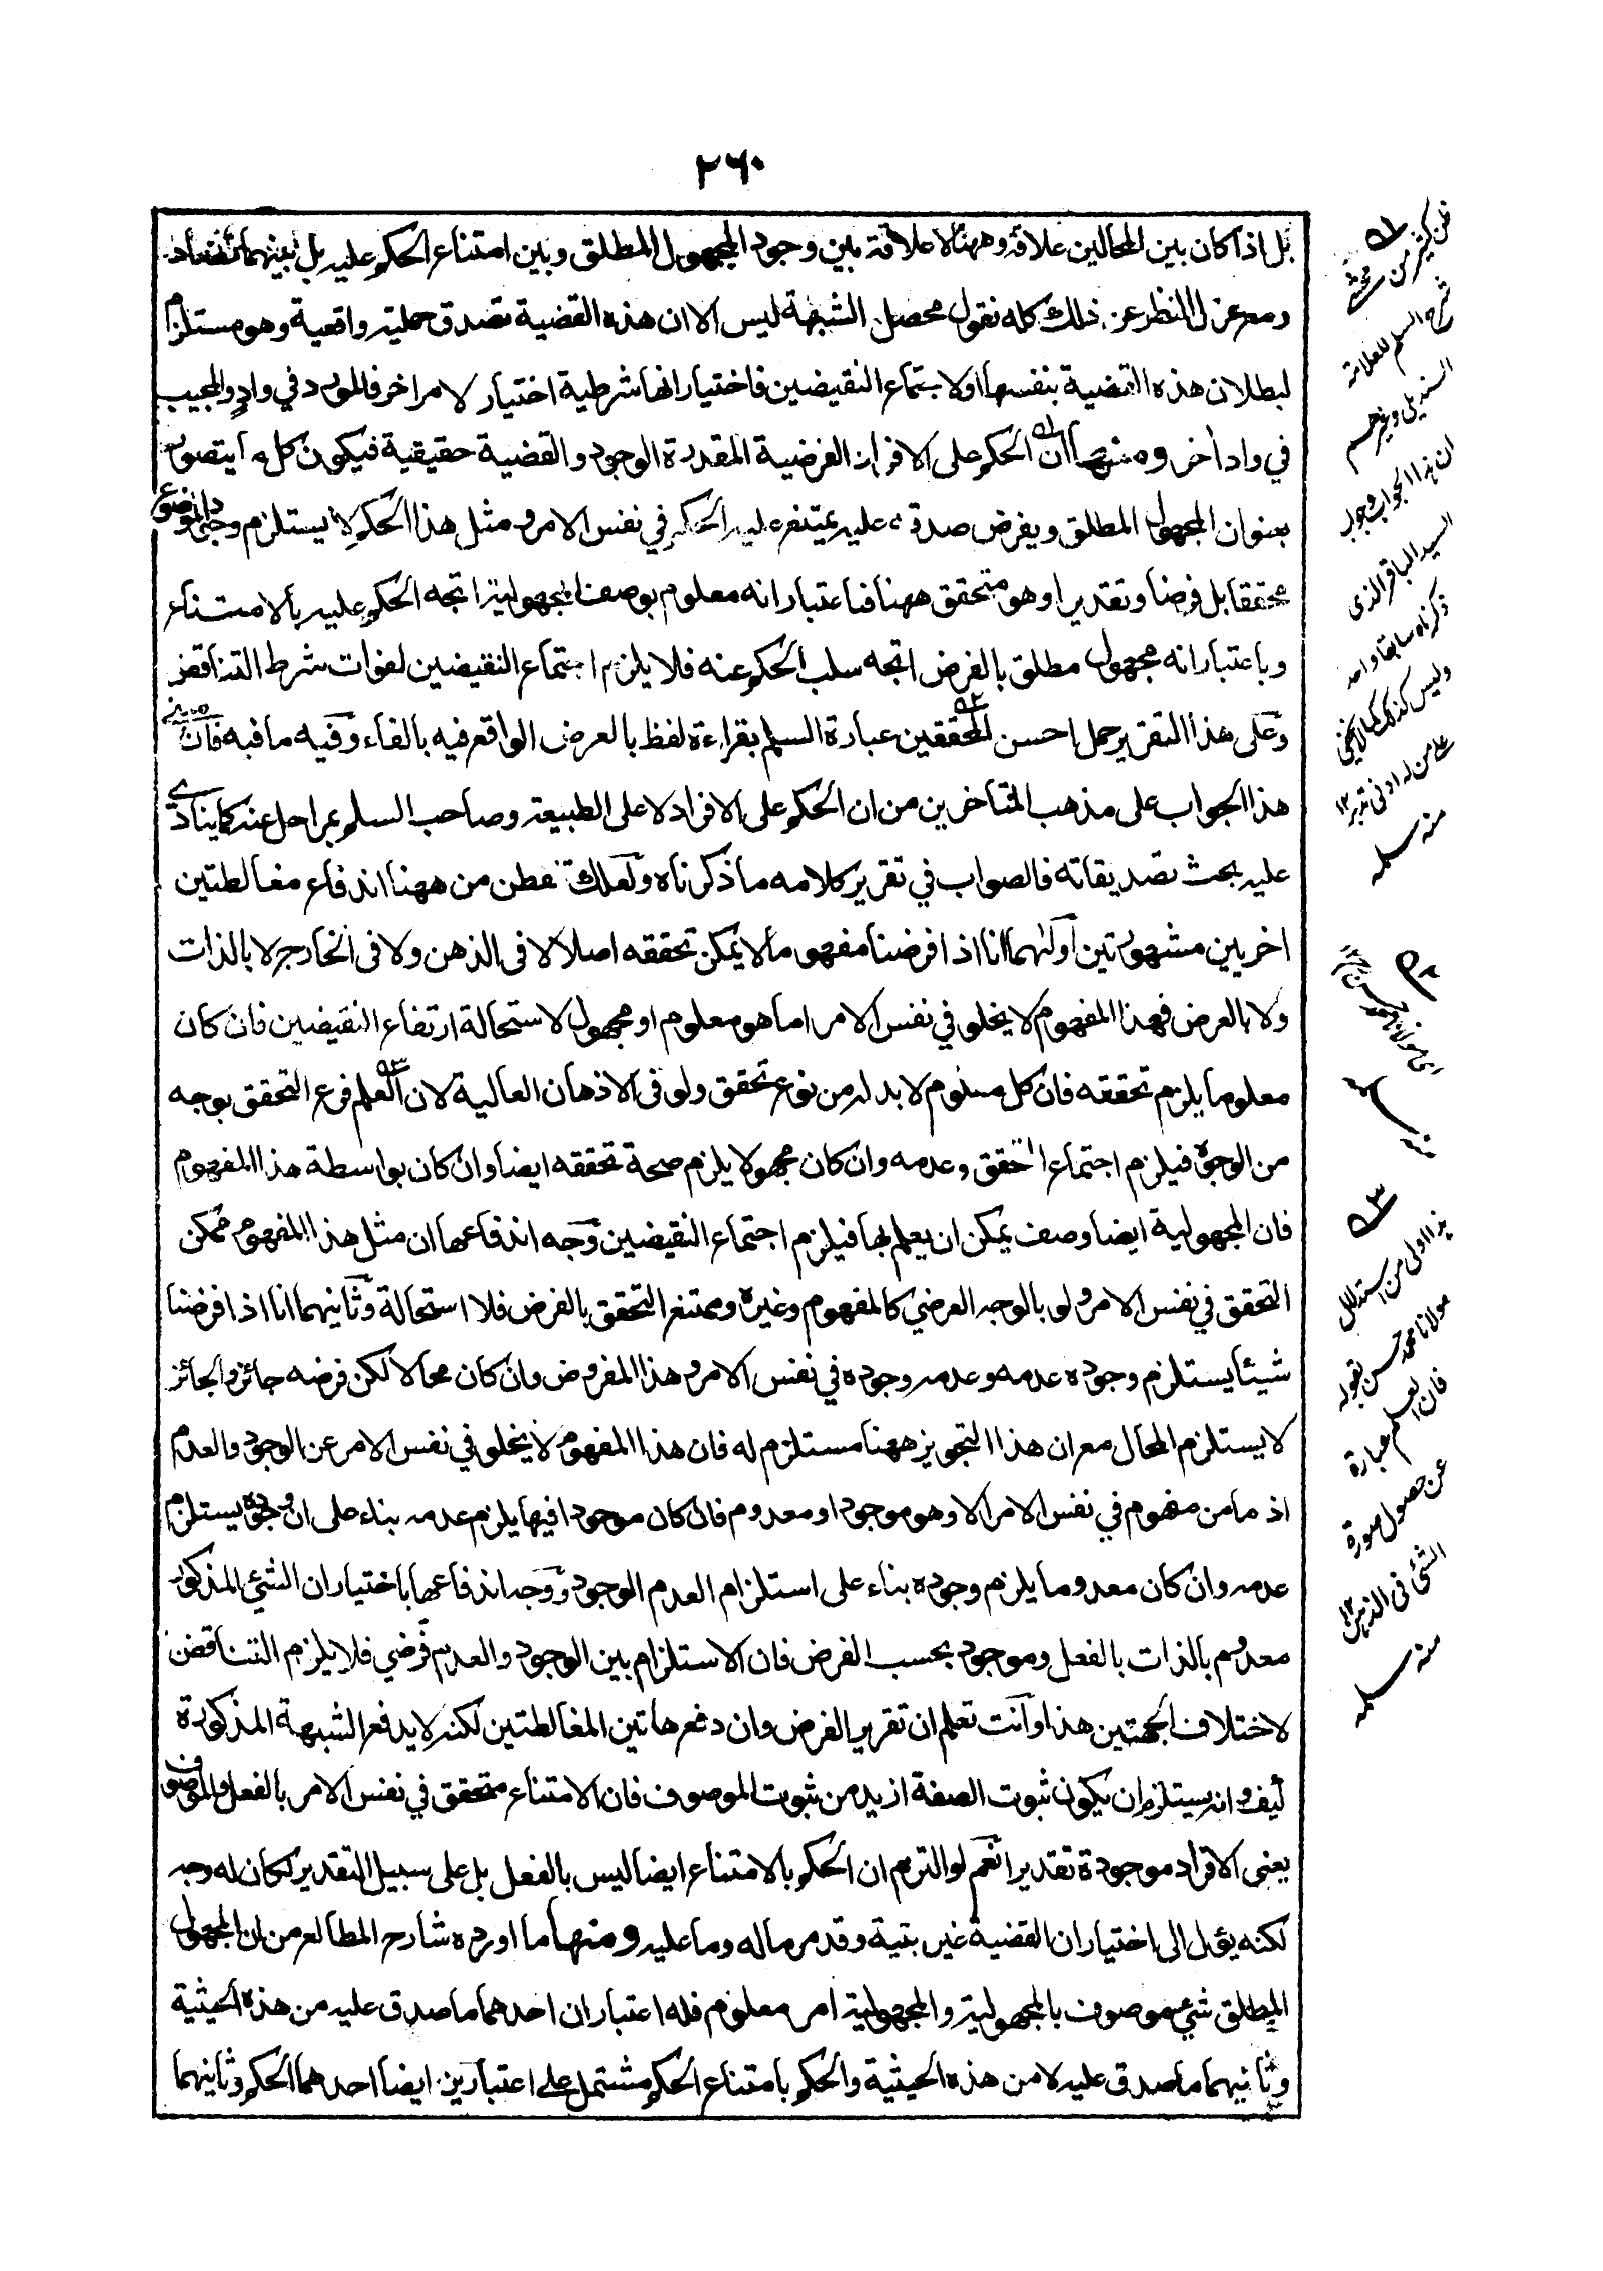 ٢٦٠
بل اذا كان بين المحالين علاقة وههنا لا علاقة بين وجود المجهول المطلق وبين امتناع الحكم عليه بل بينهما تضاد
ومع عزل النظر عن ذلك كله نقول محصل الشبهة ليس الا ان هذه القضية تصدق حملية واقعية وهو مستلزم
لبطلان هذه القضية بنفسها اولاجتماع النقيضين فاختيار انها شرطية اختيار لامر اخر فالمورد في واد والمجيب
في واد أخر ومنها ان الحكم على الافراد الفرضية المقدرة الوجود والقضية حقيقية فيكون كل ما يتصور
بعنوان المجهول المطلق ويفرض صدقه عليه يمتنع عليه الحكم في نفس الامر ومثل هذا الحكم لا يستلزم وجود الموضوع
محققا بل فرضا وتقديرا وهو متحقق ههنا فباعتبار انه معلوم بوصف المجهولية اتجه الحكم عليه بالامتناع
وباعتبار انه مجهول مطلق بالفرض اتجه سلب الحكم عنه فلا يلزم اجتماع النقيضين لفوات شرط التناقض
وعلى هذا التقرير حمل احسن المحققين عبارة السلم بقراءة لفظ بالعرض الواقع فيه بالفاء وفيه ما فيه فان مبنى
هذا الجواب على مذهب المتأخرين من ان الحكم على الافراد لا على الطبيعة وصاحب السلم بمراحل عنه كما ينادي
عليه بحث تصديقاته فالصواب في تقرير كلامه ما ذكرناه ولعلك تفطن من ههنا اندفاع مغالطتين
اخريين مشهورتين اولٰهما انا اذا فرضنا مفهوما لا يمكن تحققه اصلا لا فى الذهن ولا فى الخارج لا بالذات
ولا بالعرض فهذا المفهوم لا يخلو في نفس الامر اما هو معلوم او مجهول لاستحالة ارتفاع النقيضين فان كان
معلوما يلزم تحققه فان كل معلوم لا بد له من نوع تحقق ولو فى الاذهان العالية لان العلم فرع التحقق بوجه
من الوجوه فيلزم اجتماع التحقق وعدمه وان كان مجهولا يلزم صحة تحققه ايضا وان كان بواسطة هذا المفهوم
فان المجهولية ايضا وصف يمكن ان يعلم بها فيلزم اجتماع النقيضين وجه اندفاعها ان مثل هذا المفهوم ممكن
التحقق في نفس الامر ولو بالوجه العرضي كالمفهوم وغيره وممتنع التحقق بالفرض فلا استحالة وثانيهما انا اذا فرضنا
شيئا يستلزم وجوده عدمه وعدمه وجوده في نفس الامر وهذا المفروض وان كان محالا لكن فرضه جائز والجائز
لا يستلزم المحال مع ان هذا التجويز ههنا مستلزم له فان هذا المفهوم لا يخلو في نفس الامر عن الوجود والعدم
اذ ما من مفهوم في نفس الامر الا وهو موجود او معدوم فان كان موجودا فيها يلزم عدمه بناء على ان وجوده يستلزم
عدمه وان كان معدوما يلزم وجوده بناء على استلزام العدم الوجود ووجه اندفاعها باختيار ان الشئ المذكور
معدوم بالذات بالفعل وموجود بحسب الفرض فان الاستلزام بين الوجود والعدم فرضي فلا يلزم التناقض
لاختلاف الجهتين هذا وانت تعلم ان تقرير الفرض وان دفع هاتين المغالطتين لكنه لا يدفع الشبهة المذكورة
كيف وانه يستلزم ان يكون ثبوت الصفة ازيد من ثبوت الموصوف فان الامتناع متحقق في نفس الامر بالفعل والموصوف
يعنى الافراد موجودة تقديرا نعم لو التزم ان الحكم بالامتناع ايضا ليس بالفعل بل على سبيل التقدير لكان له وجه
لكنه يؤل الى اختيار ان القضية غير بتية وقد مر ماله وما عليه ومنها ما اورده شارح المطالع من ان المجهول
المطلق شئ موصوف بالمجهولية والمجهولية امر معلوم فله اعتباران احدهما ما صدق عليه من هذه الحيثية
وثانيهما ما صدق عليه لا من هذه الحيثية والحكم بامتناع الحكم مشتمل على اعتبارين ايضا احدهما الحكم وثانيهما
ظن كثير من محشي
شرح السلم للعلامة
السنديلي وغيرهم
ان هذا الجواب وجواب
السيد الباقر الذى
ذكرناه سابقا واحد
وليس كذلك كما لا يخفى
على من له ادنى تدبر ١٢
منه سلمه
منه
هذا اولى من استدلال
مولانا محمد حسن بقوله
فان العلم عبارة
عن حصول صورة
الشئ فى الذهن ١٢
منه سلمه